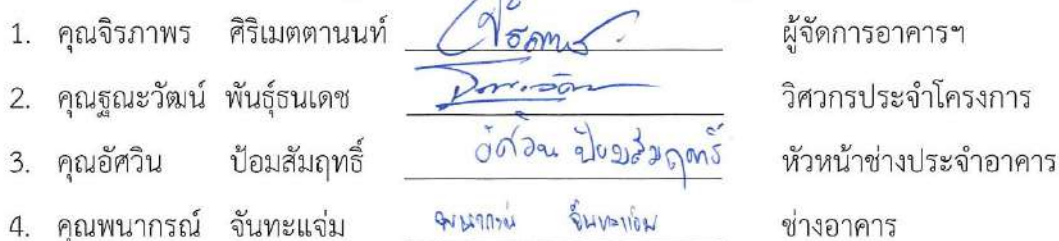 1. คุณจิรภาพร ศิริเมตตานนท์ จิรภาพร ผู้จัดการอาคารฯ
2. คุณฐณะวัฒน์ พันธุ์ธนเดช วิศวกรประจำโครงการ
3. คุณอัศวิน ป้อมสัมฤทธิ์ อัศวิน ป้อมสัมฤทธิ์ หัวหน้าช่างประจำอาคาร
4. คุณพนากรณ์ จันทะแจ่ม พนากรณ์ จันทะแจ่ม ช่างอาคาร